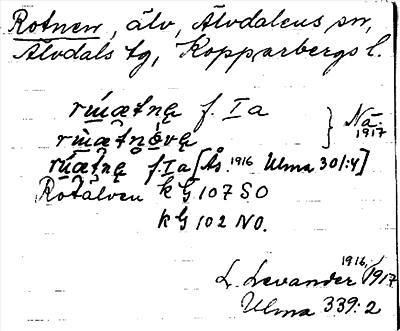 Rotnen, älv, Älvdalens sn,
Älvdals tg, Kopparbergs l.
f. Ia
Nä. 1917
f. Ia [Ås. 1916 Ulma 301:4]
Rotälven kG 107 SO
kG 102 NO.
L. Levander 1916, 1917
Ulma 339:2